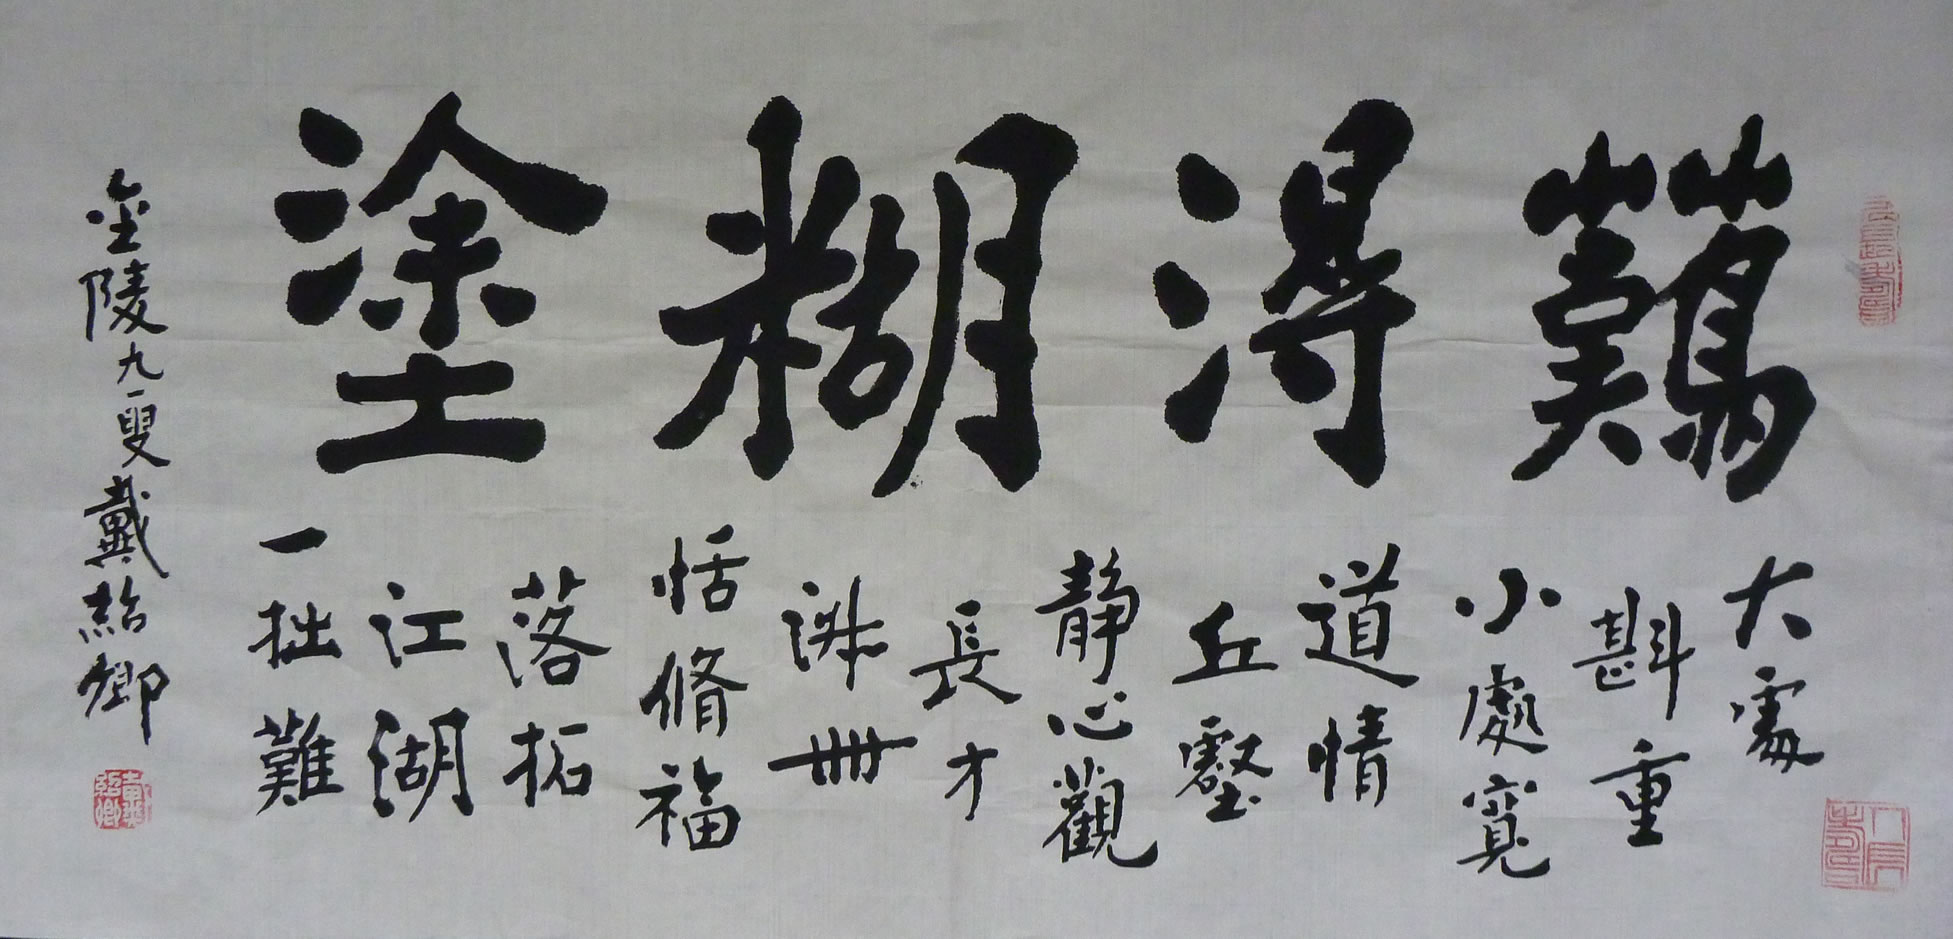 難得糊塗
大處
斟重
小處寬
道情
丘壑
靜心觀
長才
卌
恬脩福
落拓
江湖
一拙難
金陵九一叟戴紹卿
戴紹卿